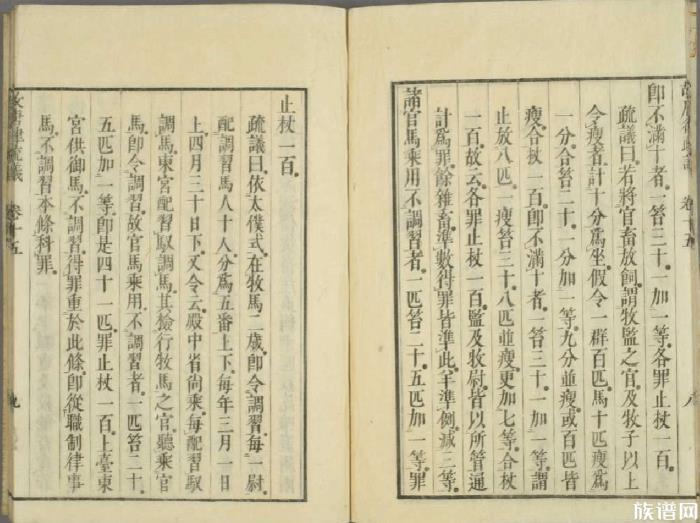 卽不滿十者一笞三十一加一等各罪止杖一百
疏議曰若將官畜放飼謂牧監之官及牧子以上
令瘦者計十分爲坐假令一群百匹馬十匹瘦爲
一分合笞二十一分加一等九分並瘦或百匹皆
瘦合杖一百卽不滿十者一笞三十一加一等謂
止放八匹一瘦笞三十八匹並瘦更加七等合杖
一百故云各罪止杖一百監及牧尉皆以所管通
計爲罪餘雜畜準數得罪皆準此羊準例減三等
諸官馬乘用不調習者一匹笞二十五匹加一等罪
卷十五
八
止杖一百
疏議曰依太僕式在牧馬二歲卽令調習每一尉
配調習馬人十人分爲五番上下每年三月一日
上四月三十日下又令云殿中省尙乘每配習馭
調馬東宮配習馭調馬其檢行牧馬之官聽乘官
馬卽令調習故官馬乘用不調習者一匹笞二十
五匹加一等卽是四十一匹罪止杖一百上臺東
宮供御馬不調習得罪重於此條卽從職制律事
馬不調習本條科罪
故唐律疏議 卷十五
九
族谱网